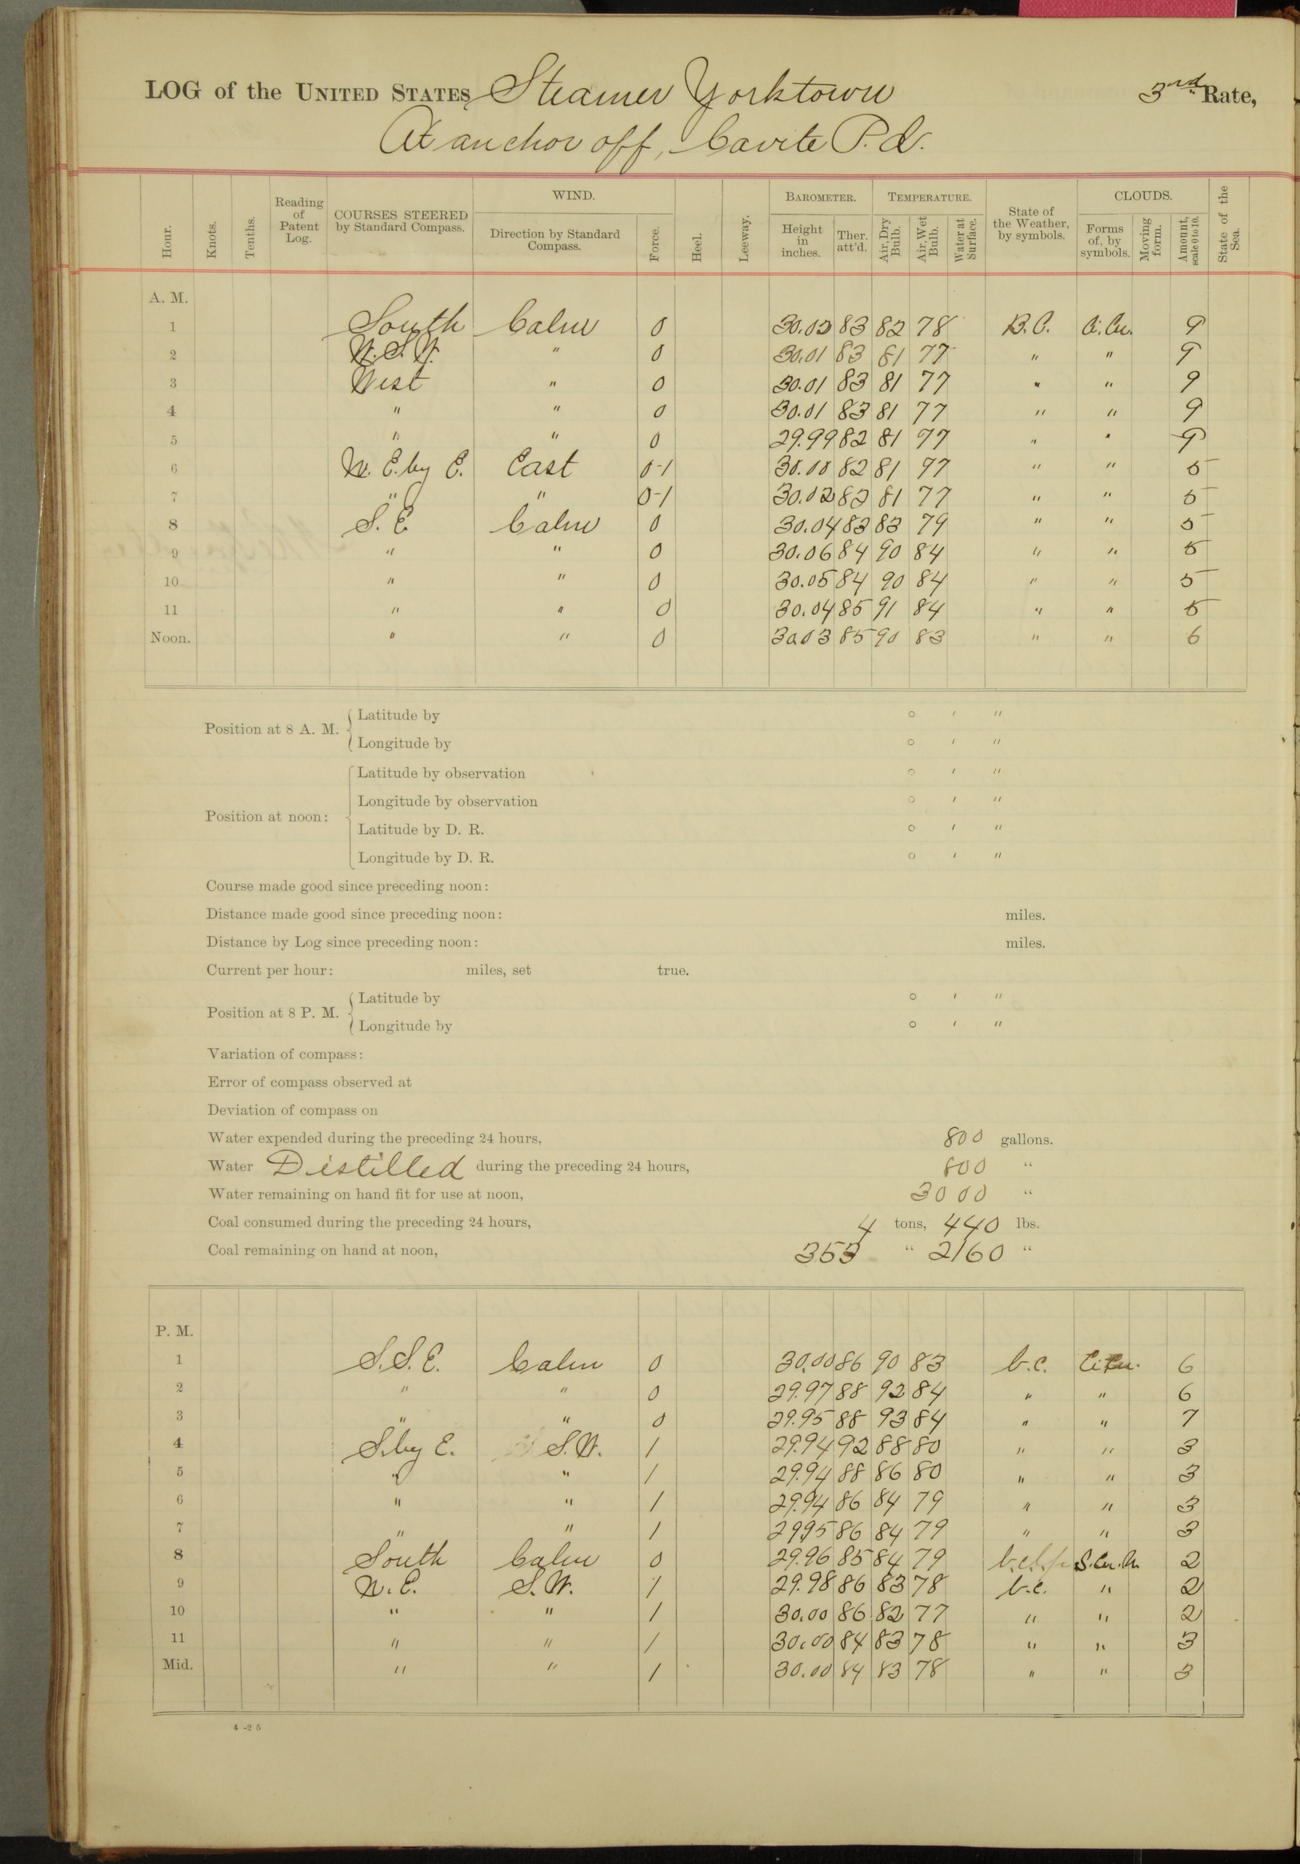 LOG of the UNITED STATES Steamer Yorktown 3rd Rate,
At anchor off, Cavite P.I.
Hour. Knots. Tenths. Reading of Patent Log. COURSES STEERED by Standard Compass. WIND. Direction by Standard Compass. Force. Heel. Leeway. BAROMETER. Height in inches. Ther. att'd. TEMPERATURE. Air, Dry Bulb. Air, Wet Bulb. Water at Surface. State of the Weather, by symbols. CLOUDS. Forms of, by symbols. Moving form. Amount, scale 0 to 10. State of the Sea.
A. M.
1 South Calm 0 30.02 83 82 78 B.C. Ci.Cu. 9
2 W.S.W. " 0 30.01 83 81 77 " " 9
3 West " 0 30.01 83 81 77 " " 9
4 " " 0 30.01 83 81 77 " " 9
5 " " 0 29.99 82 81 77 " " 9
6 N.E. by E. East 0-1 30.00 82 81 77 " " 5
7 " " 0-1 30.02 82 81 77 " " 5
8 S.E. Calm 0 30.04 83 83 79 " " 5
9 " " 0 30.06 84 90 84 " " 5
10 " " 0 30.05 84 90 84 " " 5
11 " " 0 30.04 85 91 84 " " 5
Noon. " " 0 30.03 85 90 83 " " 6
Position at 8 A. M. Latitude by ° ' "
Longitude by ° ' "
Position at noon: Latitude by observation ° ' "
Longitude by observation ° ' "
Latitude by D. R. ° ' "
Longitude by D. R. ° ' "
Course made good since preceding noon:
Distance made good since preceding noon: miles.
Distance by Log since preceding noon: miles.
Current per hour: miles, set true.
Position at 8 P. M. Latitude by ° ' "
Longitude by ° ' "
Variation of compass:
Error of compass observed at
Deviation of compass on
Water expended during the preceding 24 hours, 800 gallons.
Water Distilled during the preceding 24 hours, 800 "
Water remaining on hand fit for use at noon, 3000 "
Coal consumed during the preceding 24 hours, 4 tons, 440 lbs.
Coal remaining on hand at noon, 353 " 2160 "
P. M.
1 S.S.E. Calm 0 30.00 86 90 83 b.c. Ci.Cu. 6
2 " " 0 29.97 88 92 84 " " 6
3 " " 0 29.95 88 93 84 " " 7
4 S. by E. S.W. 1 29.94 92 88 80 " " 3
5 " " 1 29.94 88 86 80 " " 3
6 " " 1 29.94 86 84 79 " " 3
7 " " 1 29.95 86 84 79 " " 3
8 South Calm 0 29.96 85 84 79 2
9 N.E. S.W. 1 29.98 86 83 78 b.c. " 2
10 " " 1 30.00 86 82 77 " " 2
11 " " 1 30.00 84 83 78 " " 3
Mid. " " 1 30.00 84 83 78 " " 3
4-25